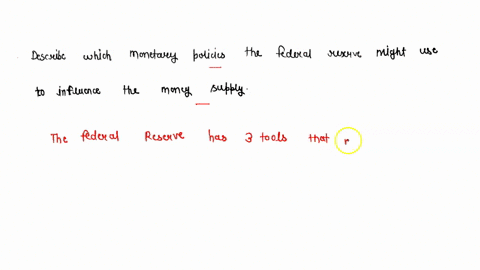 Describe which monetary policies the federal reserve might use
to influence the money supply.
The federal Reserve has 3 tools that r